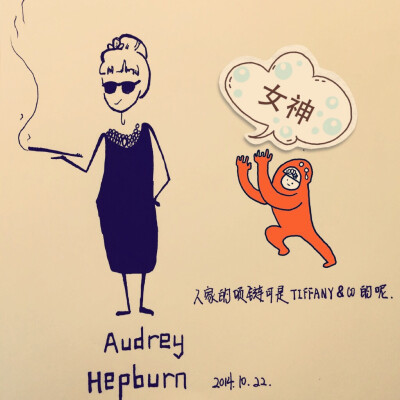 女神
人家的项链可是TIFFANY&CO的呢.
Audrey
Hepburn
2014.10.22.